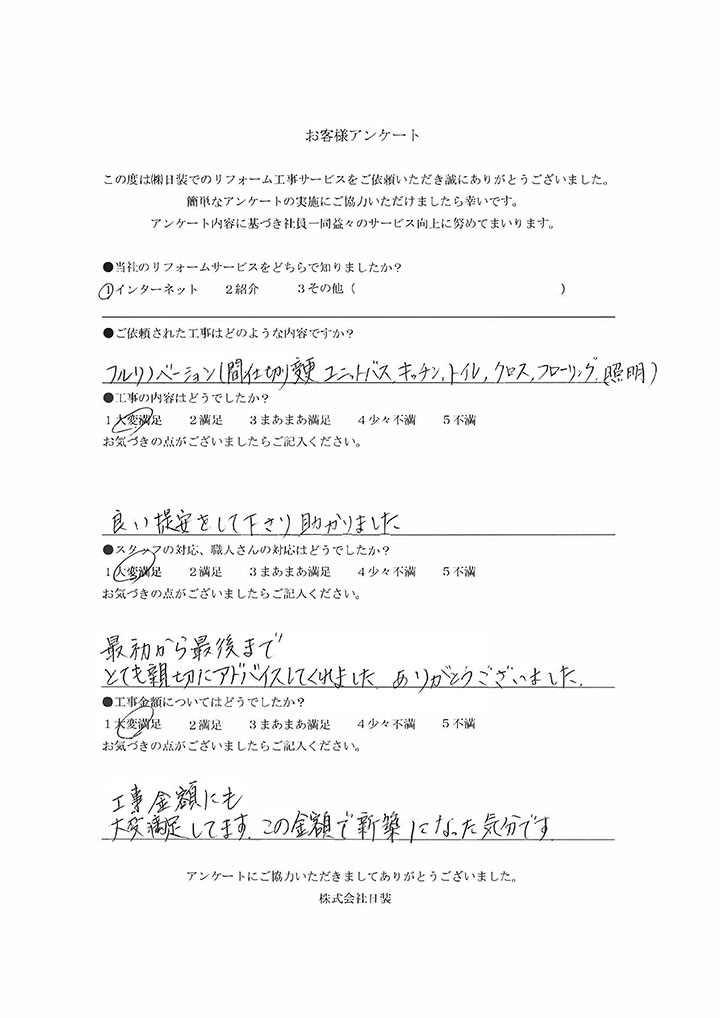 お客様アンケート
この度は㈱日装でのリフォーム工事サービスをご依頼いただき誠にありがとうございました。
簡単なアンケートの実施にご協力いただけましたら幸いです。
アンケート内容に基づき社員一同益々のサービス向上に努めてまいります。
●当社のリフォームサービスをどちらで知りましたか？
1インターネット　2紹介　3その他（　）
●ご依頼された工事はどのような内容ですか？
フルリノベーション(間仕切り変更 ユニットバス,キッチン,トイレ,クロス,フローリング,照明)
●工事の内容はどうでしたか？
1大変満足　2満足　3まあまあ満足　4少々不満　5不満
お気づきの点がございましたらご記入ください。
良い提案をして下さり助かりました
●スタッフの対応、職人さんの対応はどうでしたか？
1大変満足　2満足　3まあまあ満足　4少々不満　5不満
お気づきの点がございましたらご記入ください。
最初から最後まで
とても親切にアドバイスしてくれました。ありがとうございました。
●工事金額についてはどうでしたか？
1大変満足　2満足　3まあまあ満足　4少々不満　5不満
お気づきの点がございましたらご記入ください。
工事金額にも
大変満足してます。この金額で新築になった気分です。
アンケートにご協力いただきましてありがとうございました。
株式会社日装